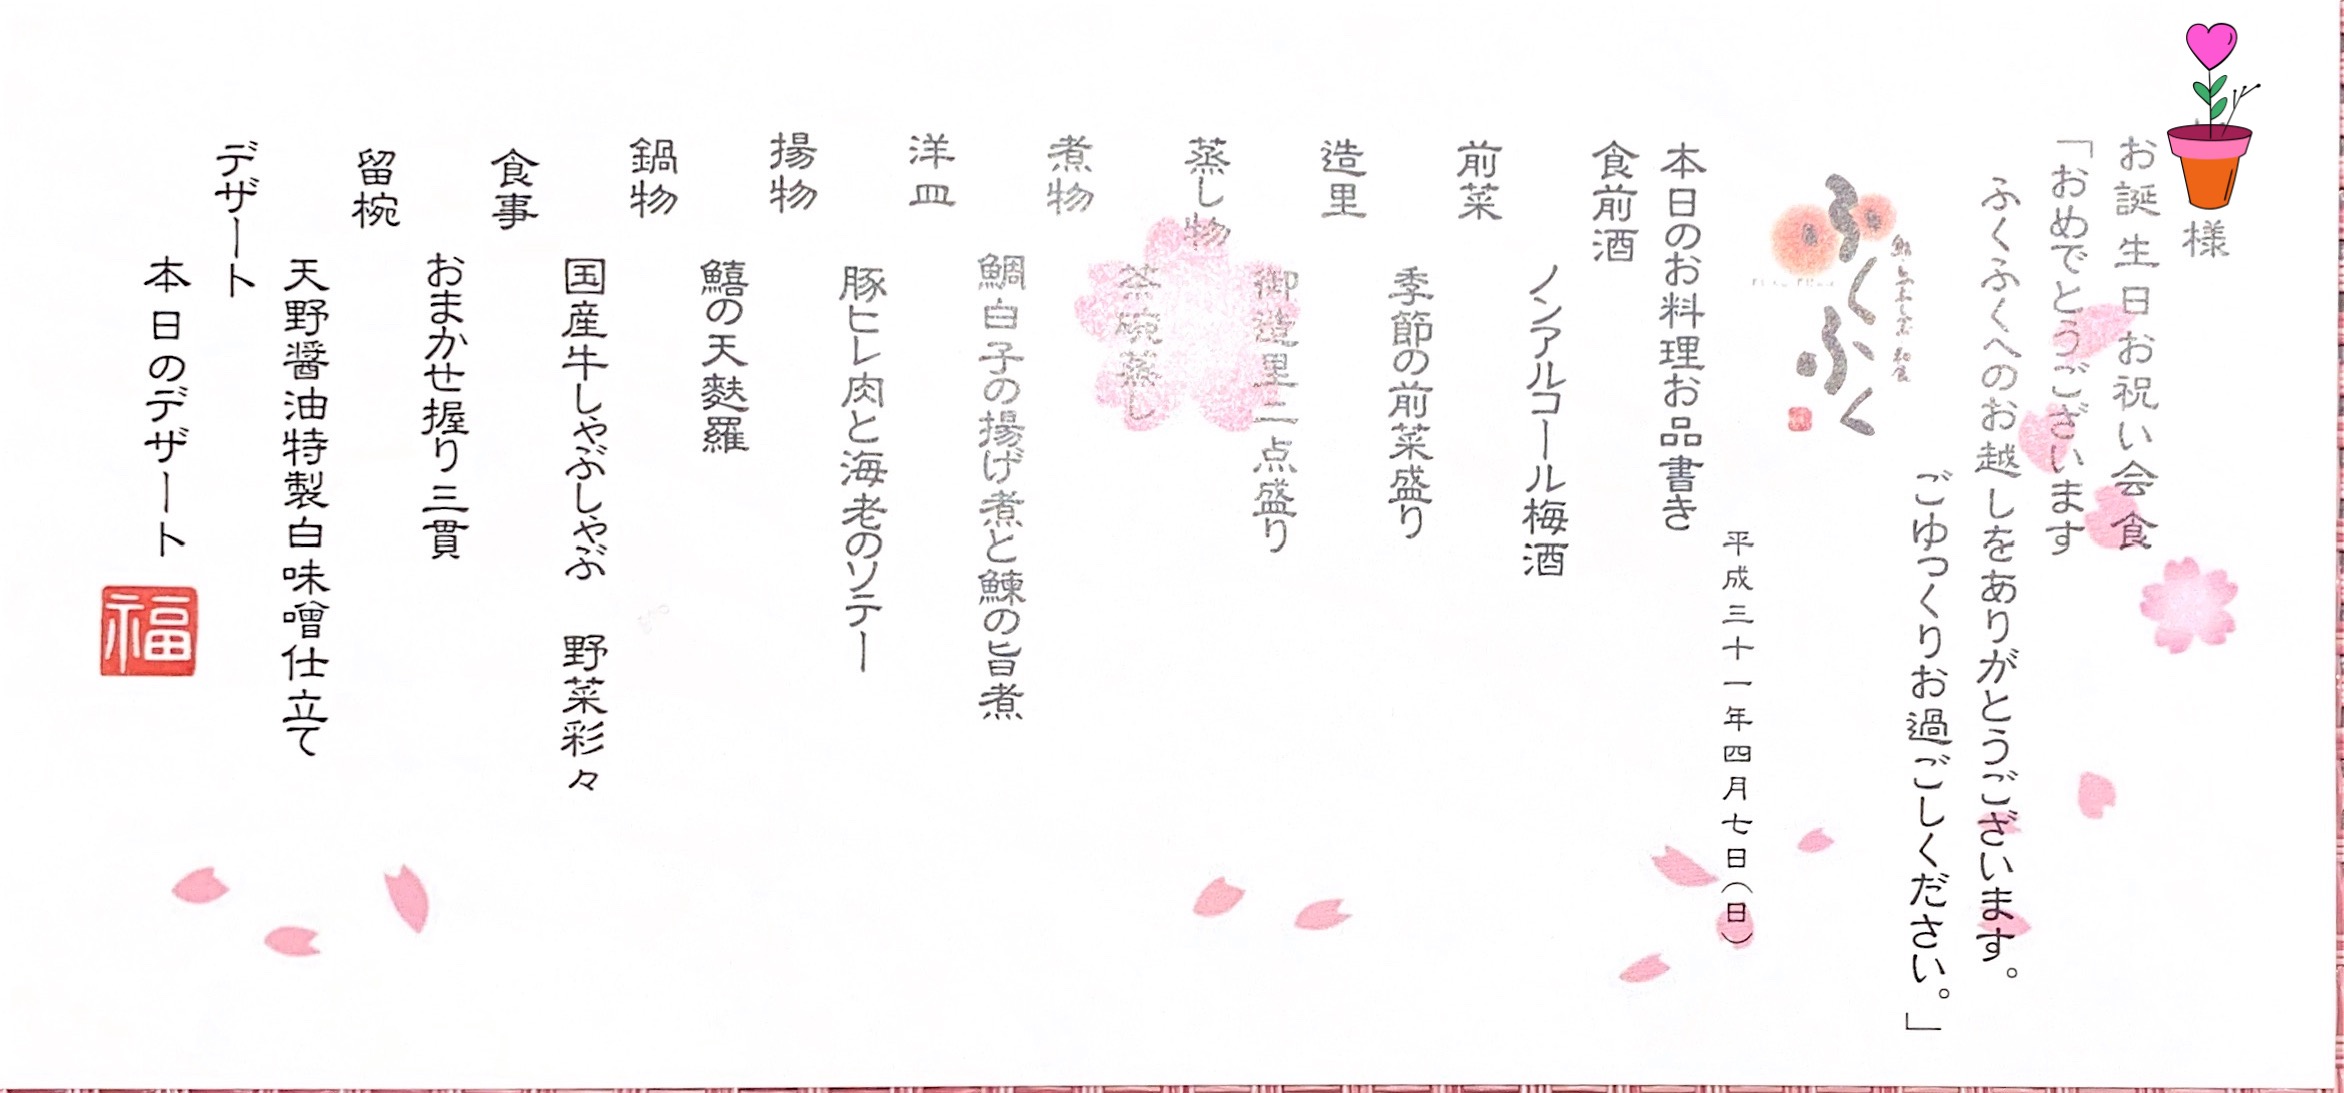 様
お誕生日お祝い会食
「おめでとうございます
ふくふくへのお越しをありがとうございます。
ごゆっくりお過ごしください。」
ふくふく
平成三十一年四月七日(日)
本日のお料理お品書き
食前酒
ノンアルコール梅酒
前菜
季節の前菜盛り
造里
御造里二点盛り
蒸し物
茶碗蒸し
煮物
鯛白子の揚げ煮と鰊の旨煮
洋皿
豚ヒレ肉と海老のソテー
揚物
鱚の天麩羅
鍋物
国産牛しゃぶしゃぶ 野菜彩々
食事
おまかせ握り三貫
留椀
天野醤油特製白味噌仕立て
デザート
本日のデザート
福